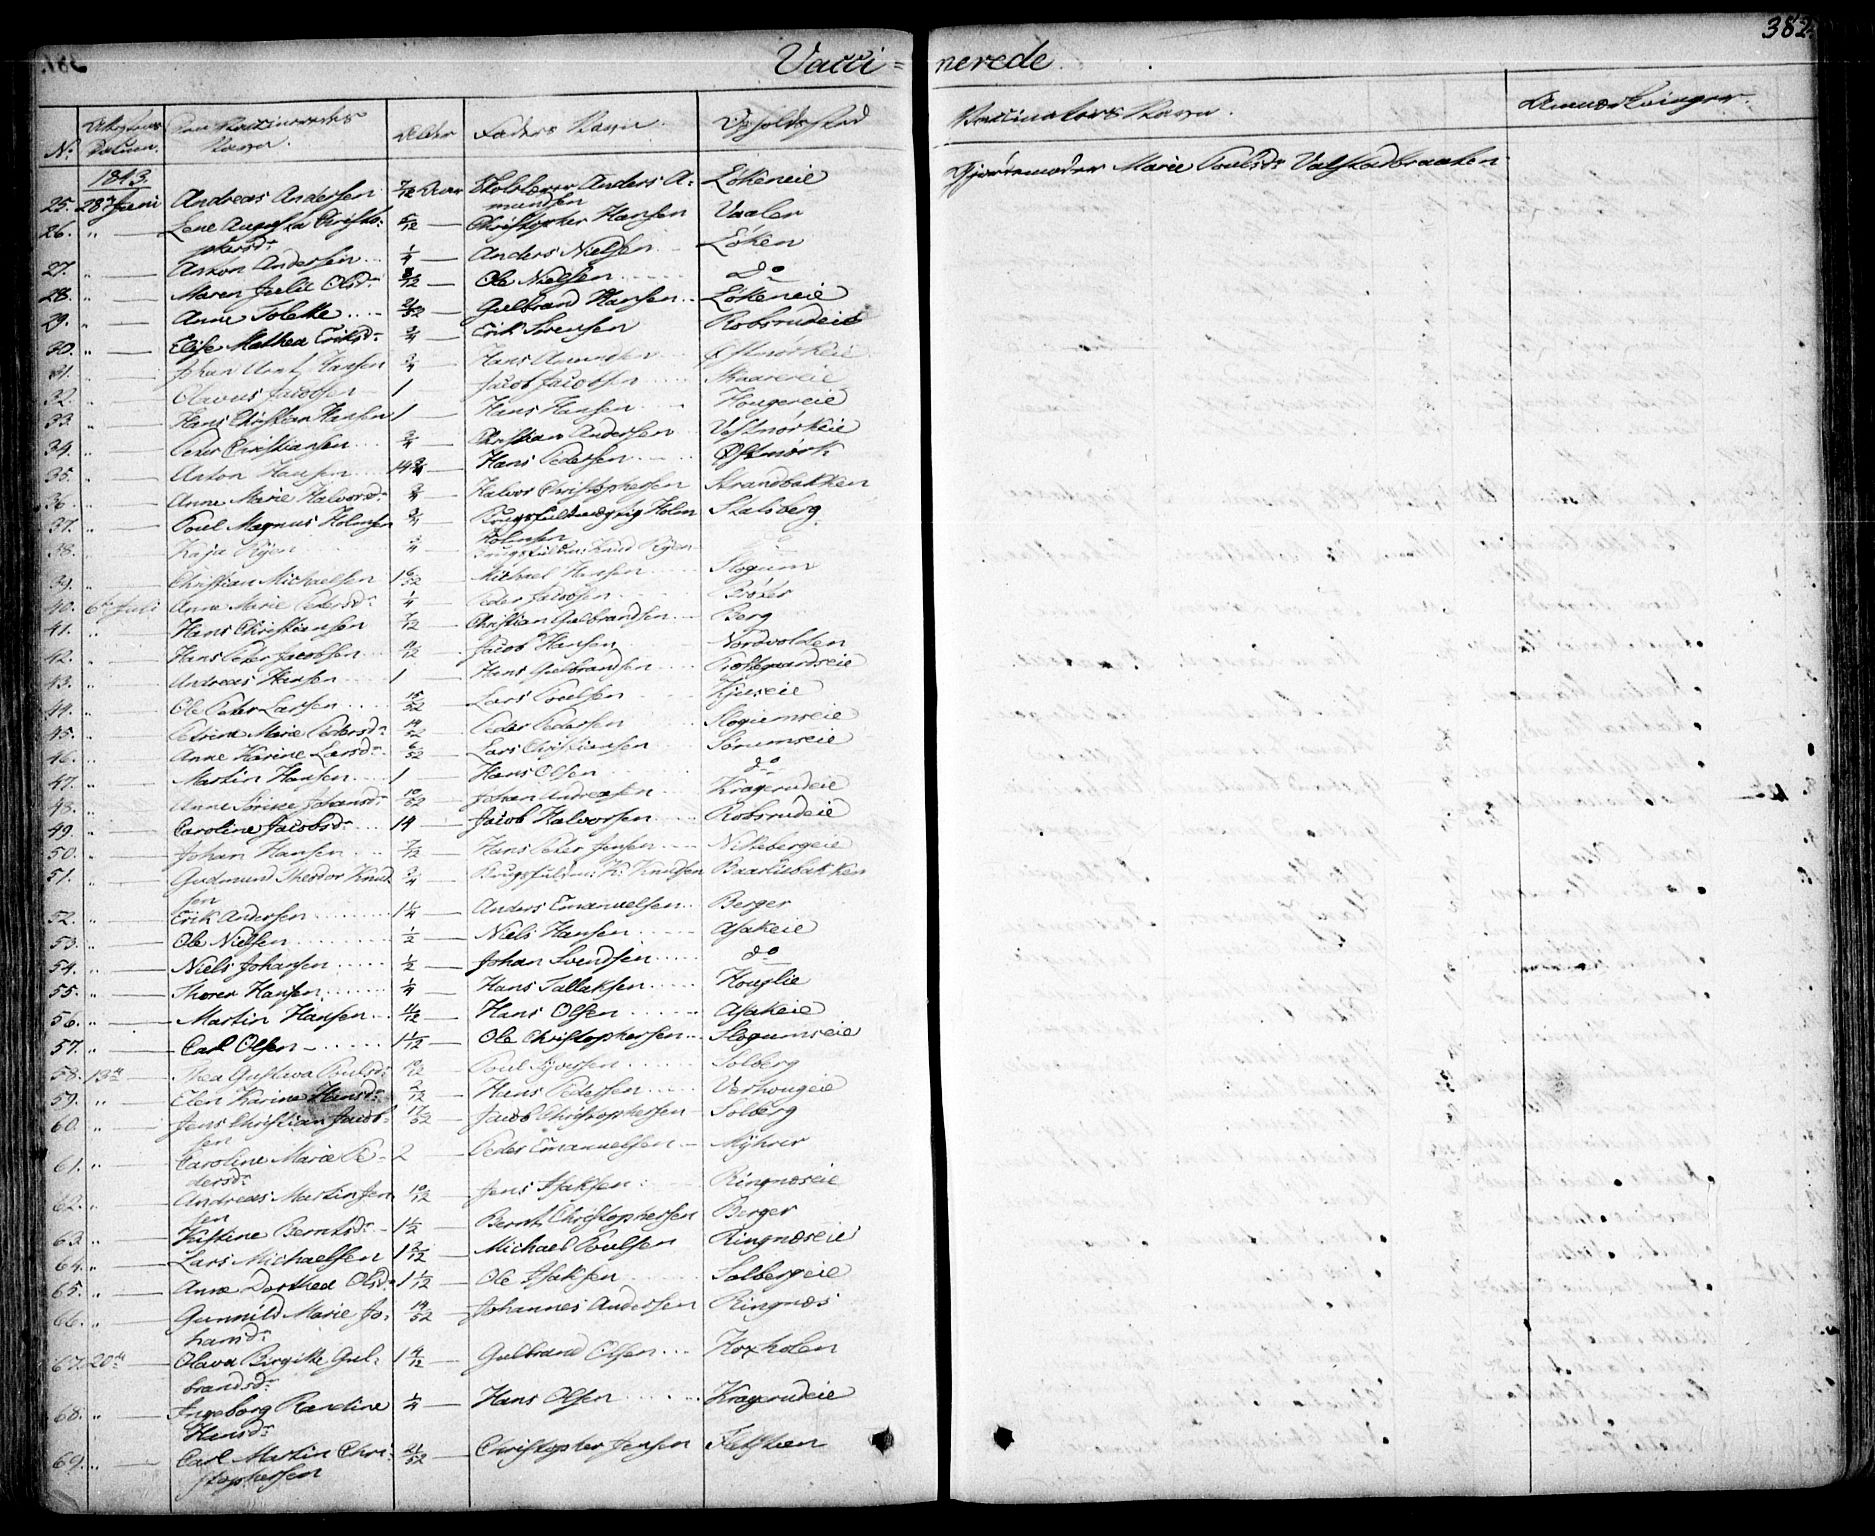 382.
Vacci= nerede.
No. Attestens Datum. Den Vaccineredes Navn. Alder Faders Navn. Opholdssted Vaccinators Navn. Anmærkninger.
1843.
25. 28de Juni Andreas Andersen 7/12 Aar Skolelærer Anders A- Løkeneie Gjordemoder Marie Poulsdr Valstadbraaten
mundsen
26. " — Lene Augusta Christo- 5/12 — Christopher Hansen Vaaler
phersdr
27. " — Anton Andersen 1/4 — Anders Nielsen Løken
28. " — Maren Julie Olsdr 8/12 — Ole Nielsen do
29. " — Anne Tolette 3/52 — Gulbrand Hansen Løkeneie
30. " — Elise Mathea Eriksdr 3/4 — Erik Svensen Robsrudeie
31. " — Johan Hansen 3/4 — Hans Østmørkeie
32. " — Olavus Jacobsen 1 — Jacob Jacobsen Skaarereie
33. " — Hans Christian Hansen 1 — Hans Hansen Hougereie
34. " — Peter Christiansen 3/4 — Christian Andersen Vestmørkeie
35. " — Anton Hansen 14 3/4 Hans Pedersen Østmørk
36. " — Anne Marie Halvorsdr 3/4 — Halvor Christophersen Strandbakken
37. " — Poul Magnus Holmsen 3/4 — Brugsfuldmægtig Holm Stalsberg
Holmsen
38. " — Kaja Ryen 3/4 — Brugsfuldm: Knud Ryen do
39. " — Christian Michaelsen 1 6/52 Michael Hansen Slogum
40. 6te Juli Anne Marie Pedersdr 1/4 — Peder Jacobsen Brøter
41. " — Hans Christiansen 7/12 — Christian Gulbrandsen Berg
42. " — Hans Peter Jacobsen 11/12 — Jacob Hansen Nordvolden
43. " — Andreas Hansen 1 — Hans Gulbrandsen Tostgaardseie
44. " — Ole Peter Larsen 15/52 — Lars Poulsen Kjuseie
45. " — Petrine Marie Pedersdr 14/52 — Peder Pedersen Slogumseie
46. " — Anne Karine Larsdr 6/52 — Lars Christiansen Sørumseie
47. " — Martin Hansen 1 — Hans Olsen do
48. " — Anne Sørine Johansdr 10/52 — Johan Andreasen Kragerudeie
49. " — Caroline Jacobsdr 14 — Jacob Halvorsen Robsrudeie
50. " — Johan Hansen 7/12 — Hans Peter Jensen Nittebergeie
51. " — Gudmund Theodor Knud 3/4 — Brugsfuldm: K. Knudsen Baarlibakken
sen
52. " — Erik Andersen 1 1/4 — Anders Emanuelsen Berger
53. " — Ole Nielsen 1/2 — Niels Hansen Asakeie
54. " — Niels Johansen 1/2 — Johan Svendsen do
55. " — Thorer Hansen 1/4 — Hans Tallaksen Houglie
56. " — Martin Hansen 11/12 — Hans Olsen Asakeie
57. " — Carl Olsen 1 1/12 — Ole Christophersen Slogumseie
58. 13de — Thea Gustava Poulsdr 10/12 Poul Syversen Solberg
59. " — Elen Karine Hansdr 2/12 — Hans Pedersen Verhougeie
60. " — Jens Christian Jacob- 17/52 — Jacob Christophersen Solberg
sen
61. " — Caroline Marie Pe- 2 — Peder Emanuelsen Myhrer
dersdr
62. " — Andreas Martin Jen 10/12 — Jens Isaksen Ringnæseie
sen
63. " — Kistine Berntsdr 1 1/2 — Bernt Christophersen Berger
64. " — Lars Michaelsen 1 3/12 — Michael Poulsen Ringnæseie
65. " — Anne Dorthea Olsdr 1 1/12 — Ole Isaksen Solbergeie
66. " — Gunnild Marie Jo- 14/52 — Johannes Andersen Ringnæs
hansdr
67. 20de — Olava Birgitte Gul- 1 4/12 — Gulbrand Olsen Koxholen
brandsdr
68. " — Ingeborg Randine 1/4 — Hans Olsen Kragerudeie
Hansdr
69. " — Carl Martin Chri- 21/52 — Christopher Jensen
stophersen